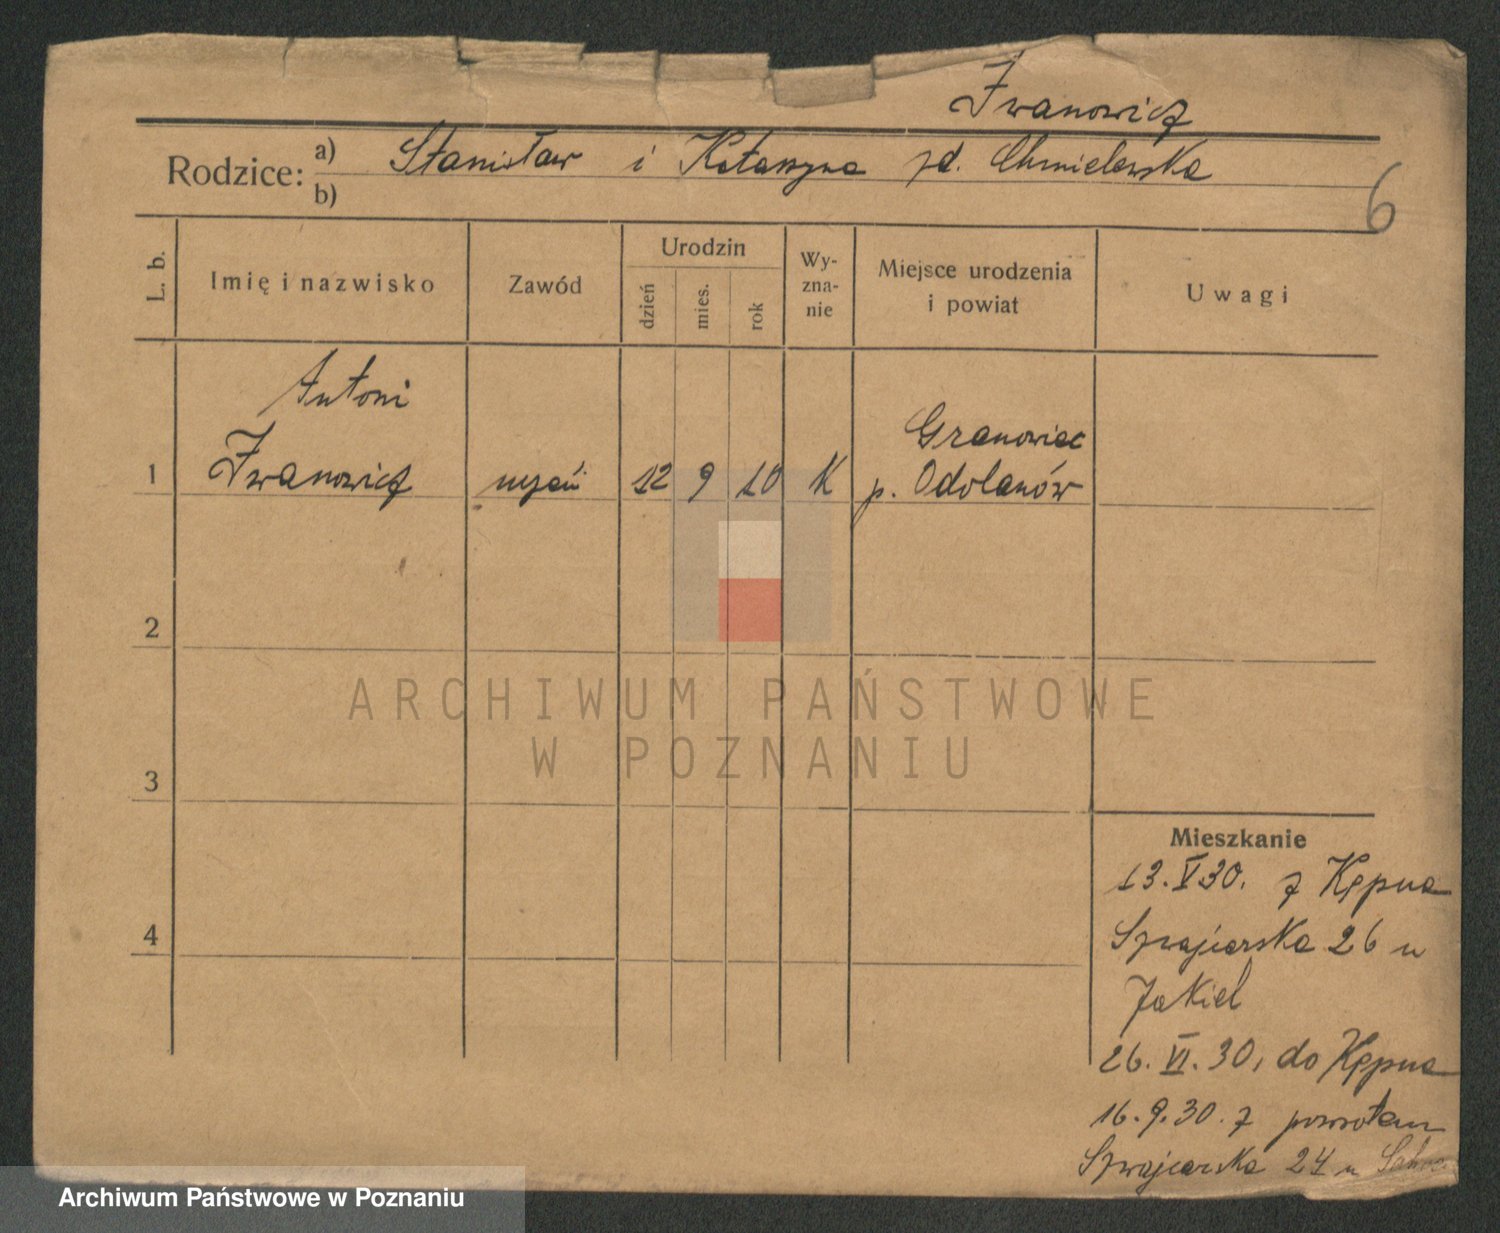 Iwanowicz
Rodzice: a) Stanisław i Katarzyna zd. Chmielewska
b)
6
L. b.
Imię i nazwisko
Zawód
Urodzin
dzień
mies.
rok
Wy-
zna-
nie
Miejsce urodzenia
i powiat
Uwagi
Antoni
Granowiec
1 Iwanowicz uczeń 12 9 10 K p. Odolanów
2
ARCHIWUM PAŃSTWOWE
W POZNANIU
3
Mieszkanie
13.V.30. z Kępna
4
Szwajcarska 26 u
Jakiel
26.VI.30. do Kępna
16.9.30. z powrotem
Szwajcarska 24 u
Archiwum Państwowe w Poznaniu